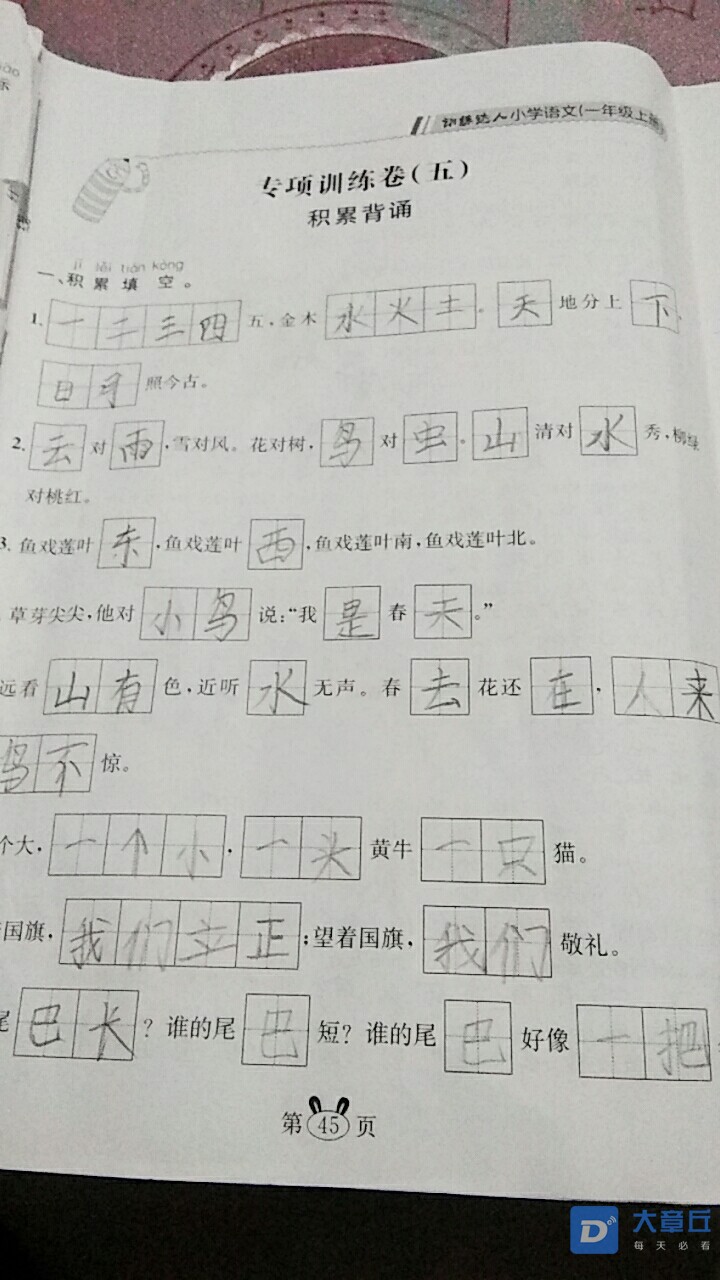 训练达人小学语文(一年级上
专项训练卷(五)
积累背诵
jī lěi tián kòng
一、积累填空。
1. 一二三四五,金木水火土。天地分上下,
日月照今古。
2. 云对雨,雪对风。花对树,鸟对虫。山清对水秀,柳绿
对桃红。
3. 鱼戏莲叶东,鱼戏莲叶西,鱼戏莲叶南,鱼戏莲叶北。
草芽尖尖,他对小鸟说:“我是春天。”
远看山有色,近听水无声。春去花还在,人来
鸟不惊。
个大,一个小,一头黄牛一只猫。
国旗,我们立正;望着国旗,我们敬礼。
尾巴长?谁的尾巴短?谁的尾巴好像一把
第45页
大章丘
每天必看